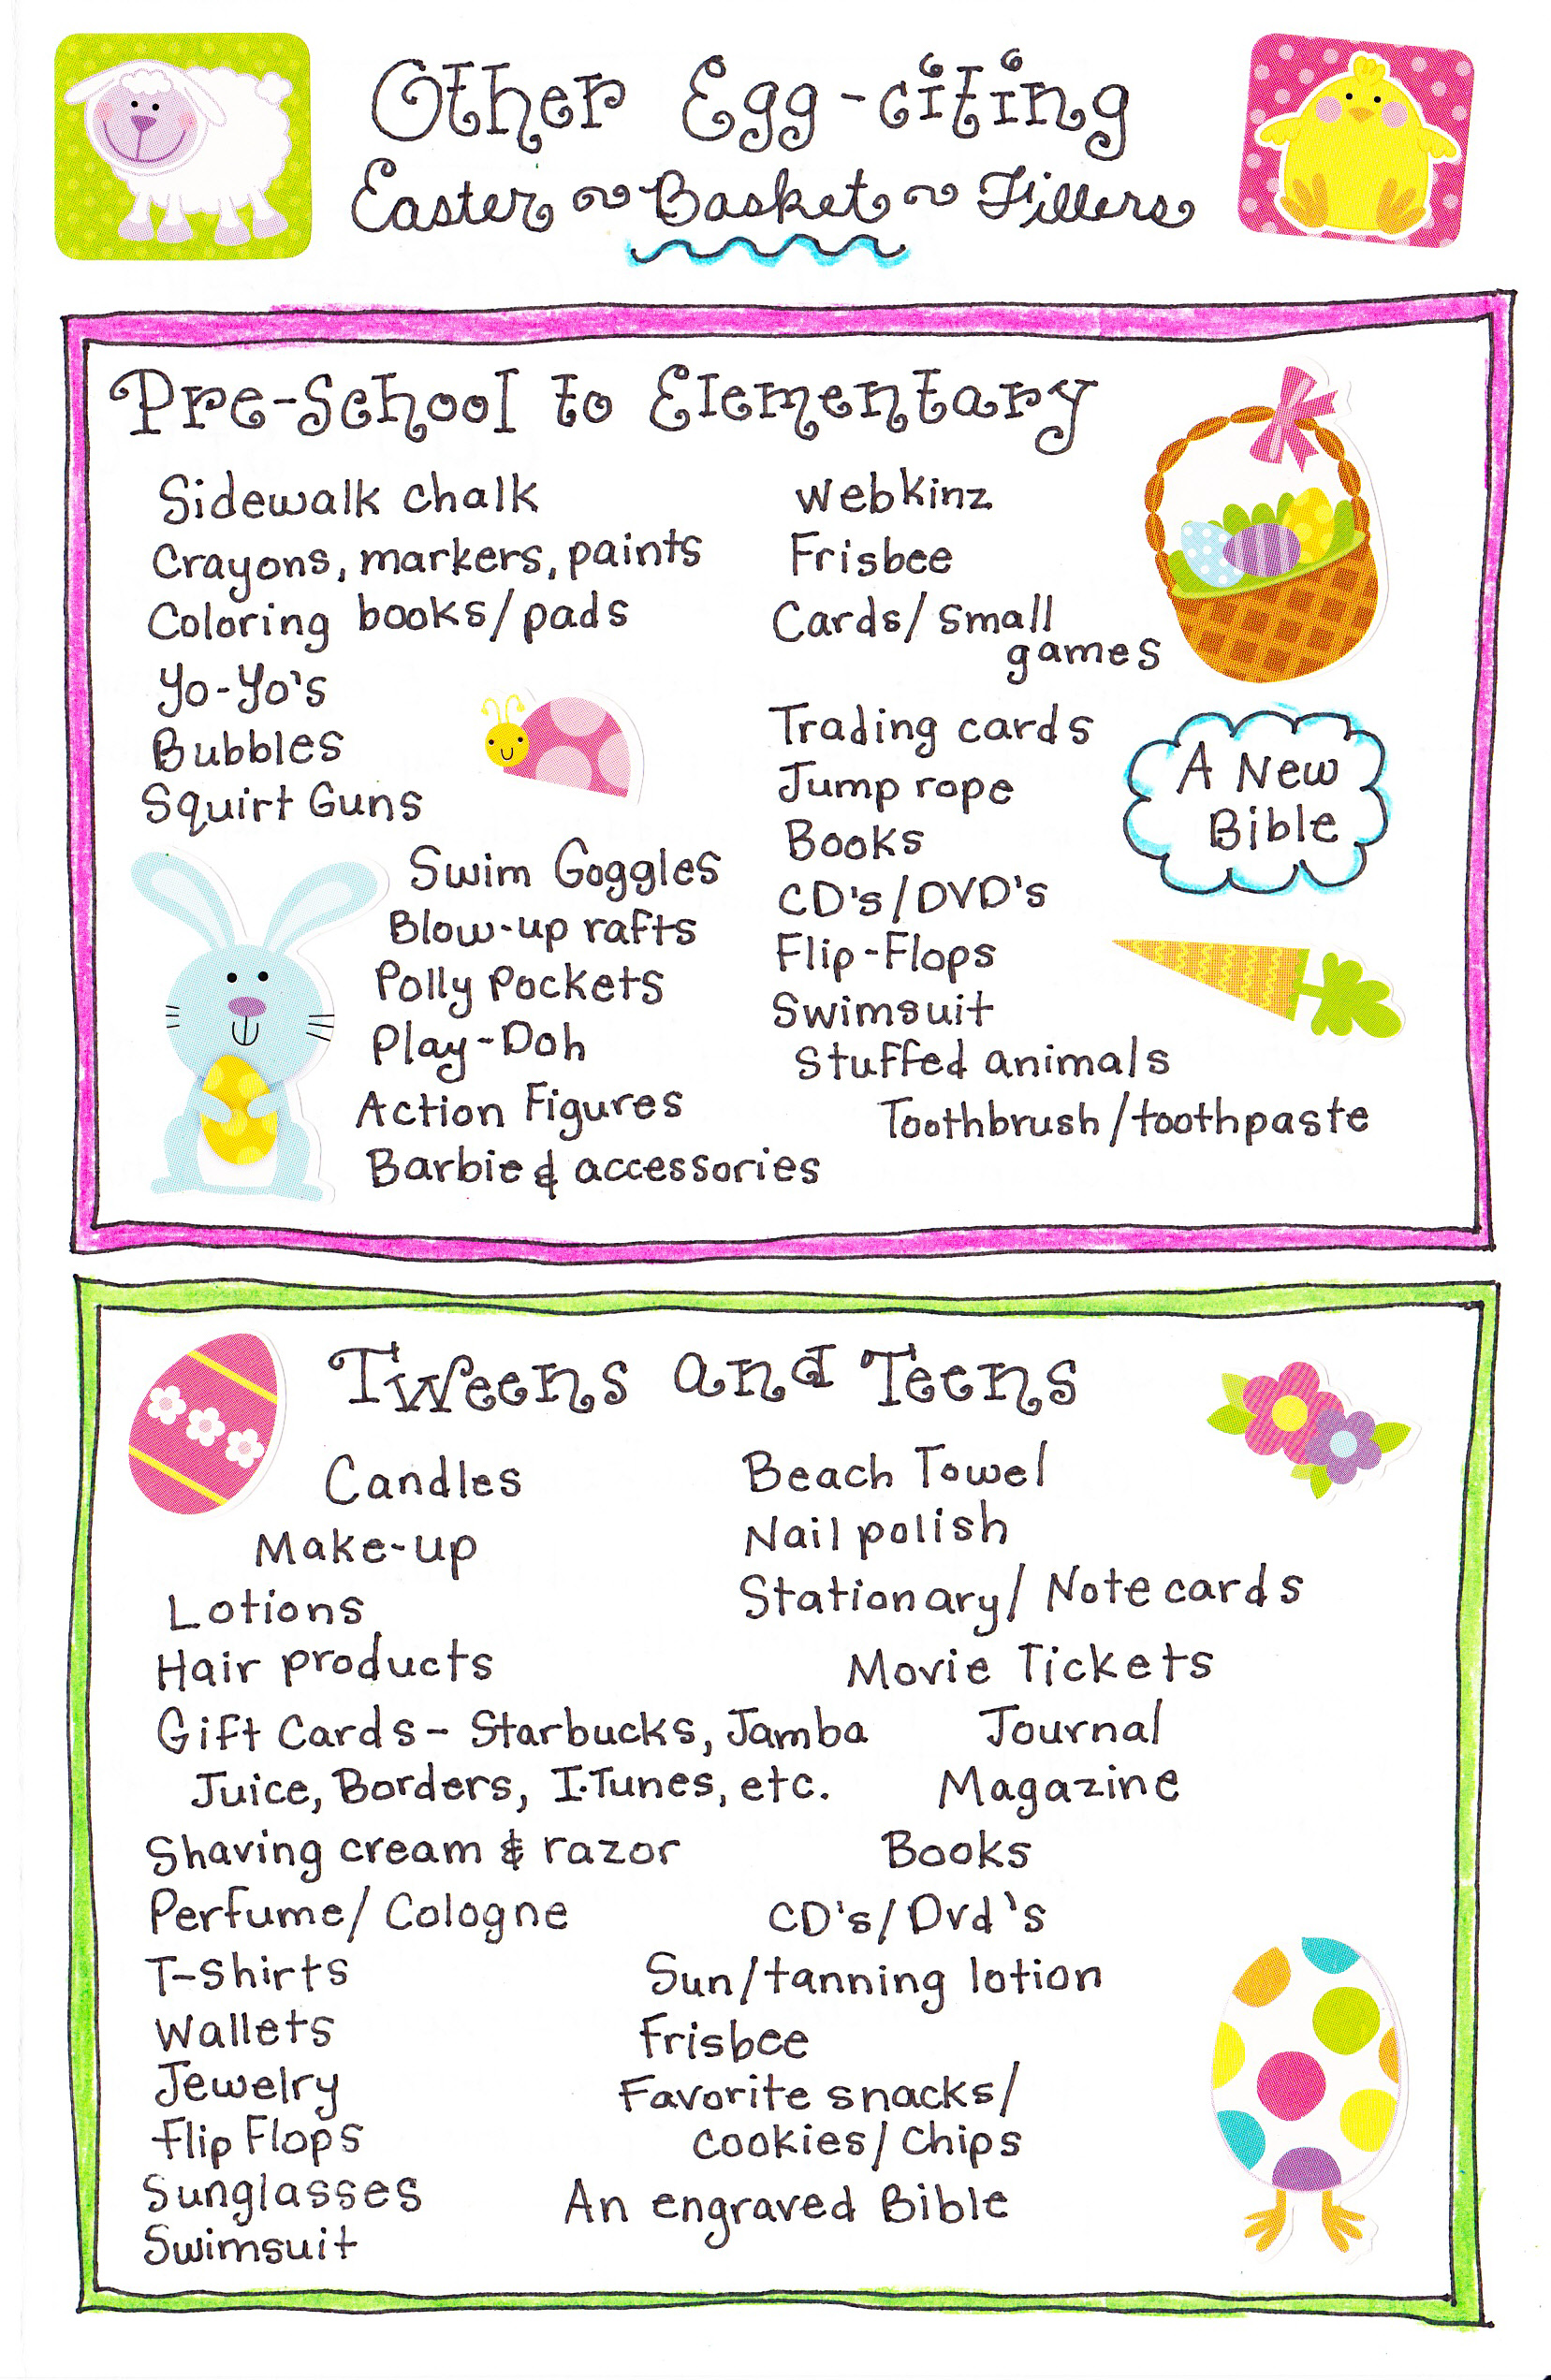 Other Egg-citing
Easter ~ Basket ~ Fillers
Pre-School to Elementary
Sidewalk chalk
Crayons, markers, paints
Coloring books/pads
Yo-Yo's
Bubbles
Squirt Guns
Swim Goggles
Blow-up rafts
Polly Pockets
Play-Doh
Action Figures
Barbie & accessories
Webkinz
Frisbee
Cards/Small
games
Trading cards
Jump rope
Books
CD's/DVD's
Flip-Flops
Swimsuit
Stuffed animals
Toothbrush/toothpaste
A New
Bible
Tweens and Teens
Candles
Make-up
Lotions
Hair products
Gift Cards- Starbucks, Jamba
Juice, Borders, I-Tunes, etc.
Shaving cream & razor
Perfume/Cologne
T-Shirts
Wallets
Jewelry
Flip Flops
Sunglasses
Swimsuit
Beach Towel
Nail polish
Stationary/Note cards
Movie Tickets
Journal
Magazine
Books
CD's/Dvd's
Sun/tanning lotion
Frisbee
Favorite snacks/
Cookies/Chips
An engraved Bible